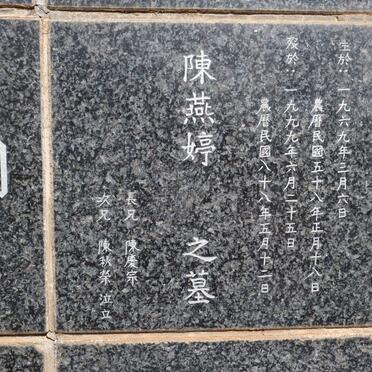 生於：一九六九年三月六日
農曆民國五十八年正月十八日
歿於：一九九九年六月二十五日
農曆民國八十八年五月十二日
陳燕婷 之墓
長兄 陳慶宗
次兄 陳秋榮 泣立